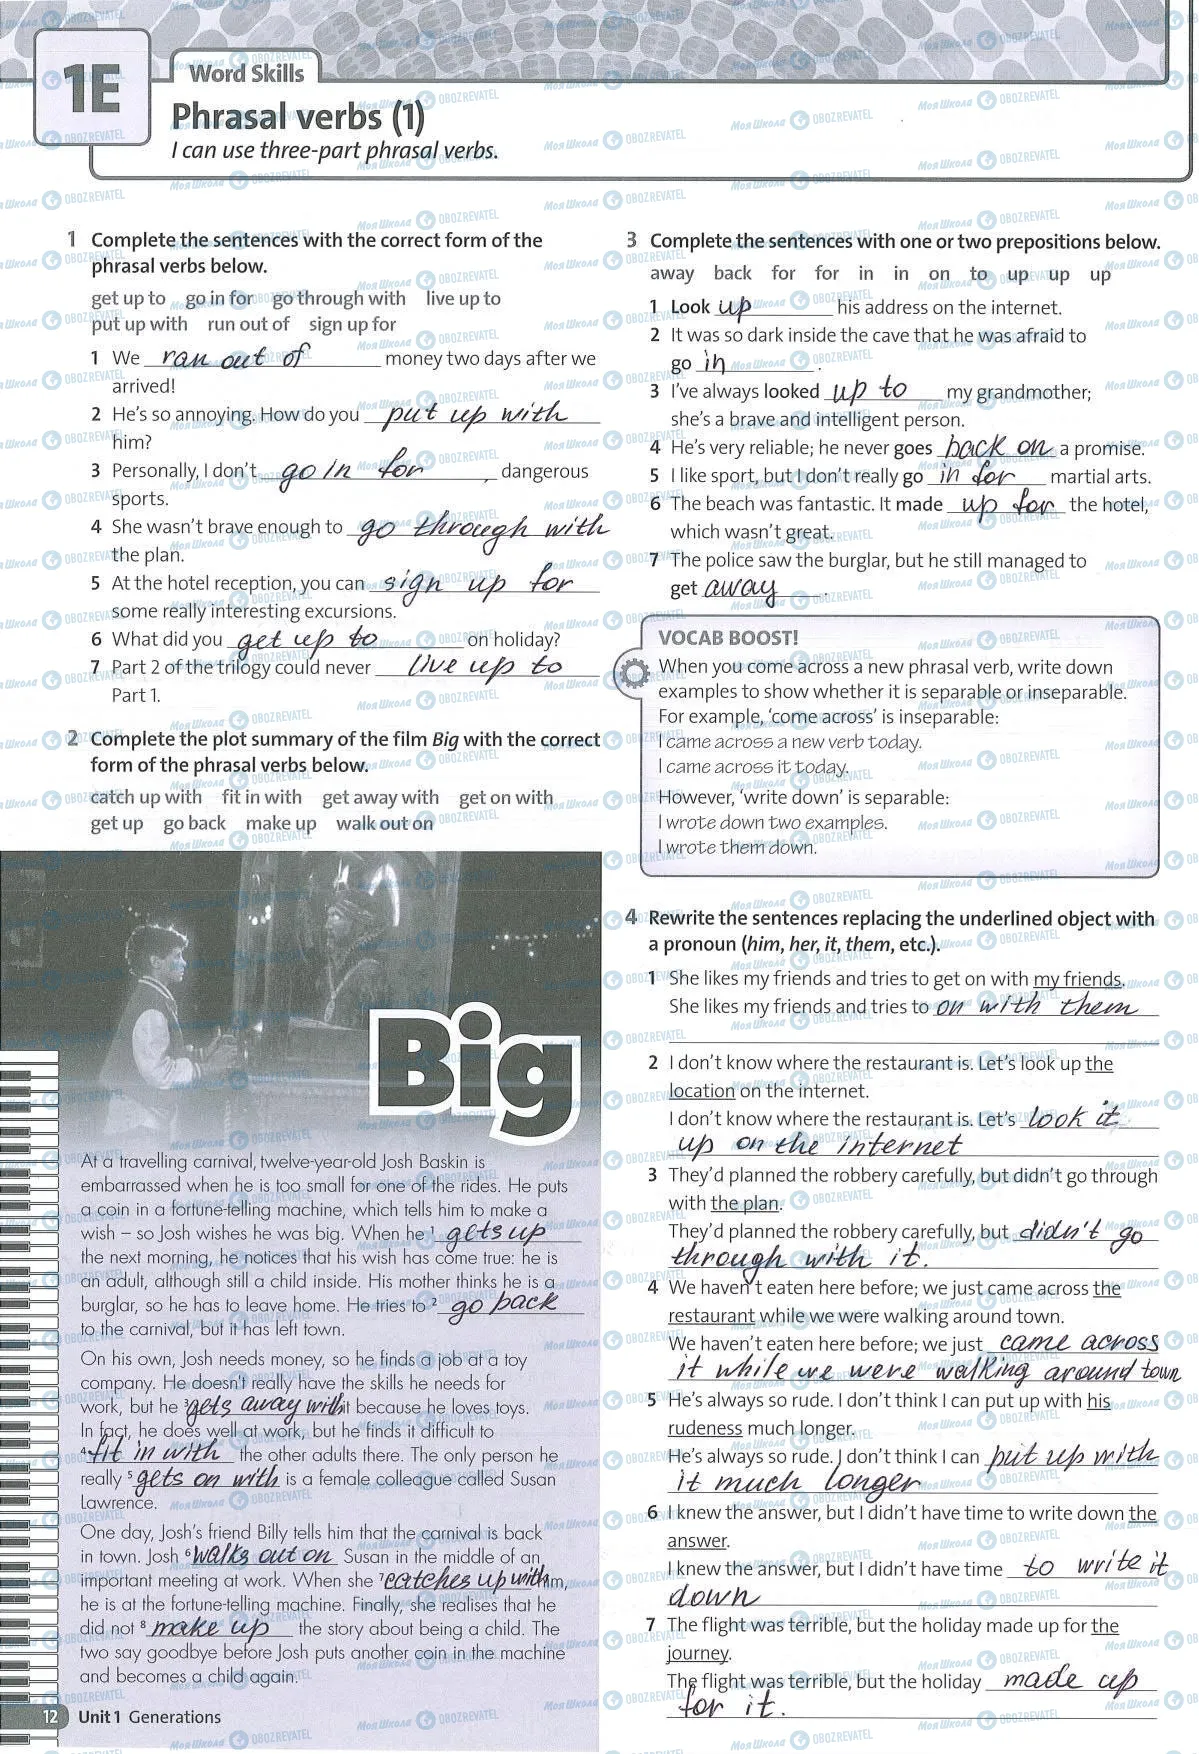 1E
Word Skills
Phrasal verbs (1)
I can use three-part phrasal verbs.
1 Complete the sentences with the correct form of the
phrasal verbs below.
get up to go in for go through with live up to
put up with run out of sign up for
1 We ran out of money two days after we
arrived!
2 He's so annoying. How do you put up with
him?
3 Personally, I don't go in for dangerous
sports.
4 She wasn't brave enough to go through with
the plan.
5 At the hotel reception, you can sign up for
some really interesting excursions.
6 What did you get up to on holiday?
7 Part 2 of the trilogy could never live up to
Part 1.
2 Complete the plot summary of the film Big with the correct
form of the phrasal verbs below.
catch up with fit in with get away with get on with
get up go back make up walk out on
Big
At a travelling carnival, twelve-year-old Josh Baskin is
embarrassed when he is too small for one of the rides. He puts
a coin in a fortune-telling machine, which tells him to make a
wish – so Josh wishes he was big. When he ¹ gets up
the next morning, he notices that his wish has come true: he is
an adult, although still a child inside. His mother thinks he is a
burglar, so he has to leave home. He tries to ² go back
to the carnival, but it has left town.
On his own, Josh needs money, so he finds a job at a toy
company. He doesn't really have the skills he needs for
work, but he ³gets away with it because he loves toys.
In fact, he does well at work, but he finds it difficult to
⁴ fit in with the other adults there. The only person he
really ⁵ gets on with is a female colleague called Susan
Lawrence.
One day, Josh's friend Billy tells him that the carnival is back
in town. Josh ⁶ walks out on Susan in the middle of an
important meeting at work. When she ⁷catches up with him,
he is at the fortune-telling machine. Finally, she realises that he
did not ⁸ make up the story about being a child. The
two say goodbye before Josh puts another coin in the machine
and becomes a child again.
12 Unit 1 Generations
3 Complete the sentences with one or two prepositions below.
away back for for in in on to up up up
1 Look up his address on the internet.
2 It was so dark inside the cave that he was afraid to
go in .
3 I've always looked up to my grandmother;
she's a brave and intelligent person.
4 He's very reliable; he never goes back on a promise.
5 I like sport, but I don't really go in for martial arts.
6 The beach was fantastic. It made up for the hotel,
which wasn't great.
7 The police saw the burglar, but he still managed to
get away .
VOCAB BOOST!
When you come across a new phrasal verb, write down
examples to show whether it is separable or inseparable.
For example, 'come across' is inseparable:
I came across a new verb today.
I came across it today.
However, 'write down' is separable:
I wrote down two examples.
I wrote them down.
4 Rewrite the sentences replacing the underlined object with
a pronoun (him, her, it, them, etc.).
1 She likes my friends and tries to get on with my friends.
She likes my friends and tries to on with them
2 I don't know where the restaurant is. Let's look up the
location on the internet.
I don't know where the restaurant is. Let's look it
up on the internet
3 They'd planned the robbery carefully, but didn't go through
with the plan.
They'd planned the robbery carefully, but didn't go
through with it.
4 We haven't eaten here before; we just came across the
restaurant while we were walking around town.
We haven't eaten here before; we just came across
it while we were walking around town
5 He's always so rude. I don't think I can put up with his
rudeness much longer.
He's always so rude. I don't think I can put up with
it much longer
6 I knew the answer, but I didn't have time to write down the
answer.
I knew the answer, but I didn't have time to write it
down
7 The flight was terrible, but the holiday made up for the
journey.
The flight was terrible, but the holiday made up
for it.
Моя Школа OBOZREVATEL